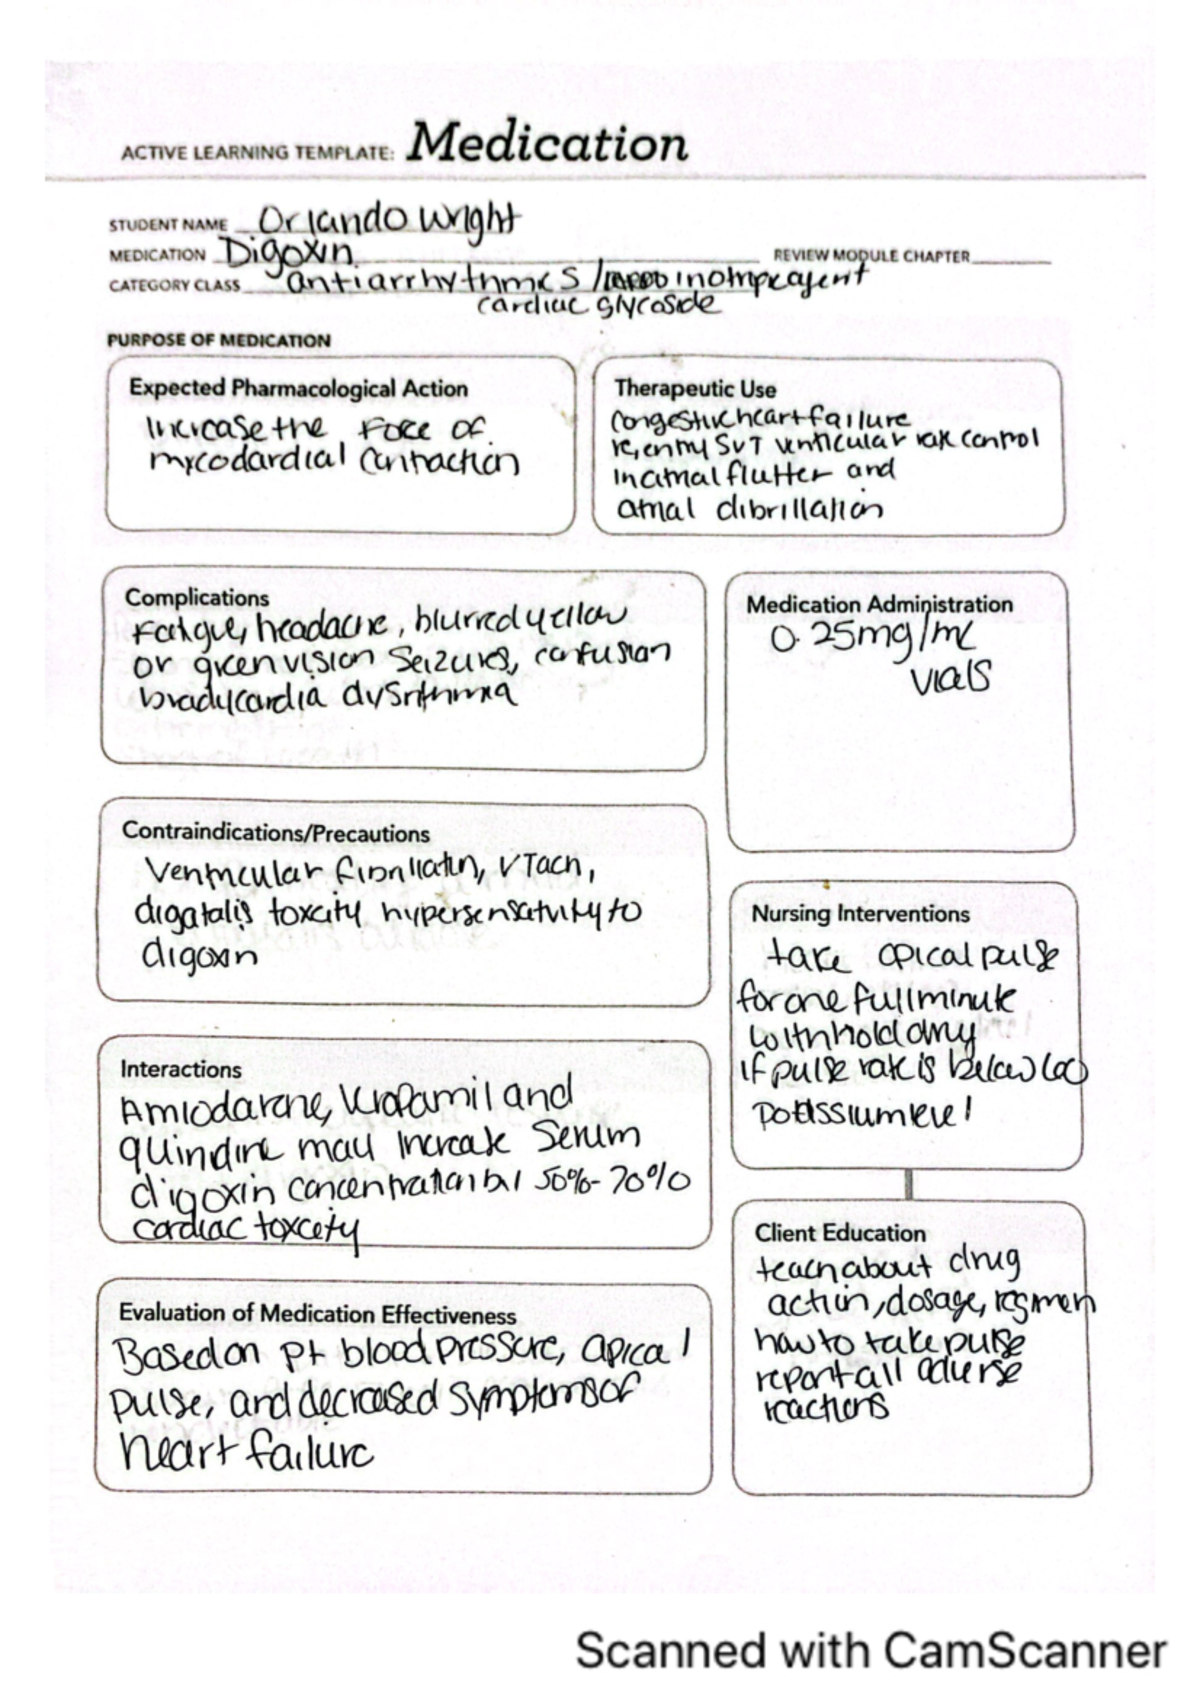 ACTIVE LEARNING TEMPLATE: Medication
STUDENT NAME Orlando Wright
MEDICATION Digoxin
REVIEW MODULE CHAPTER
CATEGORY CLASS antiarrhythmics / inotropic agent
cardiac glycoside
PURPOSE OF MEDICATION
Expected Pharmacological Action
Increase the Force of
mycodardial contraction
Therapeutic Use
Congestive heart failure
re,entry SVT ventricular rate control
in atrial flutter and
atrial dibrillation
Complications
Fatigue, headache, blurred yellow
or green vision Seizures, confusion
bradycardia dysrithmia
Medication Administration
0.25mg/mL
vials
Contraindications/Precautions
Ventricular fibrillatin, VTach,
digatalis toxcity, hypersensativity to
digoxin
Nursing Interventions
take apical pulse
for one full minute
withhold
if pulse rate is below 60
Potassium level
Interactions
Amiodarone, Verapamil and
quindine may Increase Serum
digoxin concentration by 50%-70%
cardiac toxcety
Client Education
teach about drug
action, dosage, regimen
how to take pulse
report all adverse
reactions
Evaluation of Medication Effectiveness
Based on pt blood pressure, apical
pulse, and decreased symptoms of
heart failure
Scanned with CamScanner